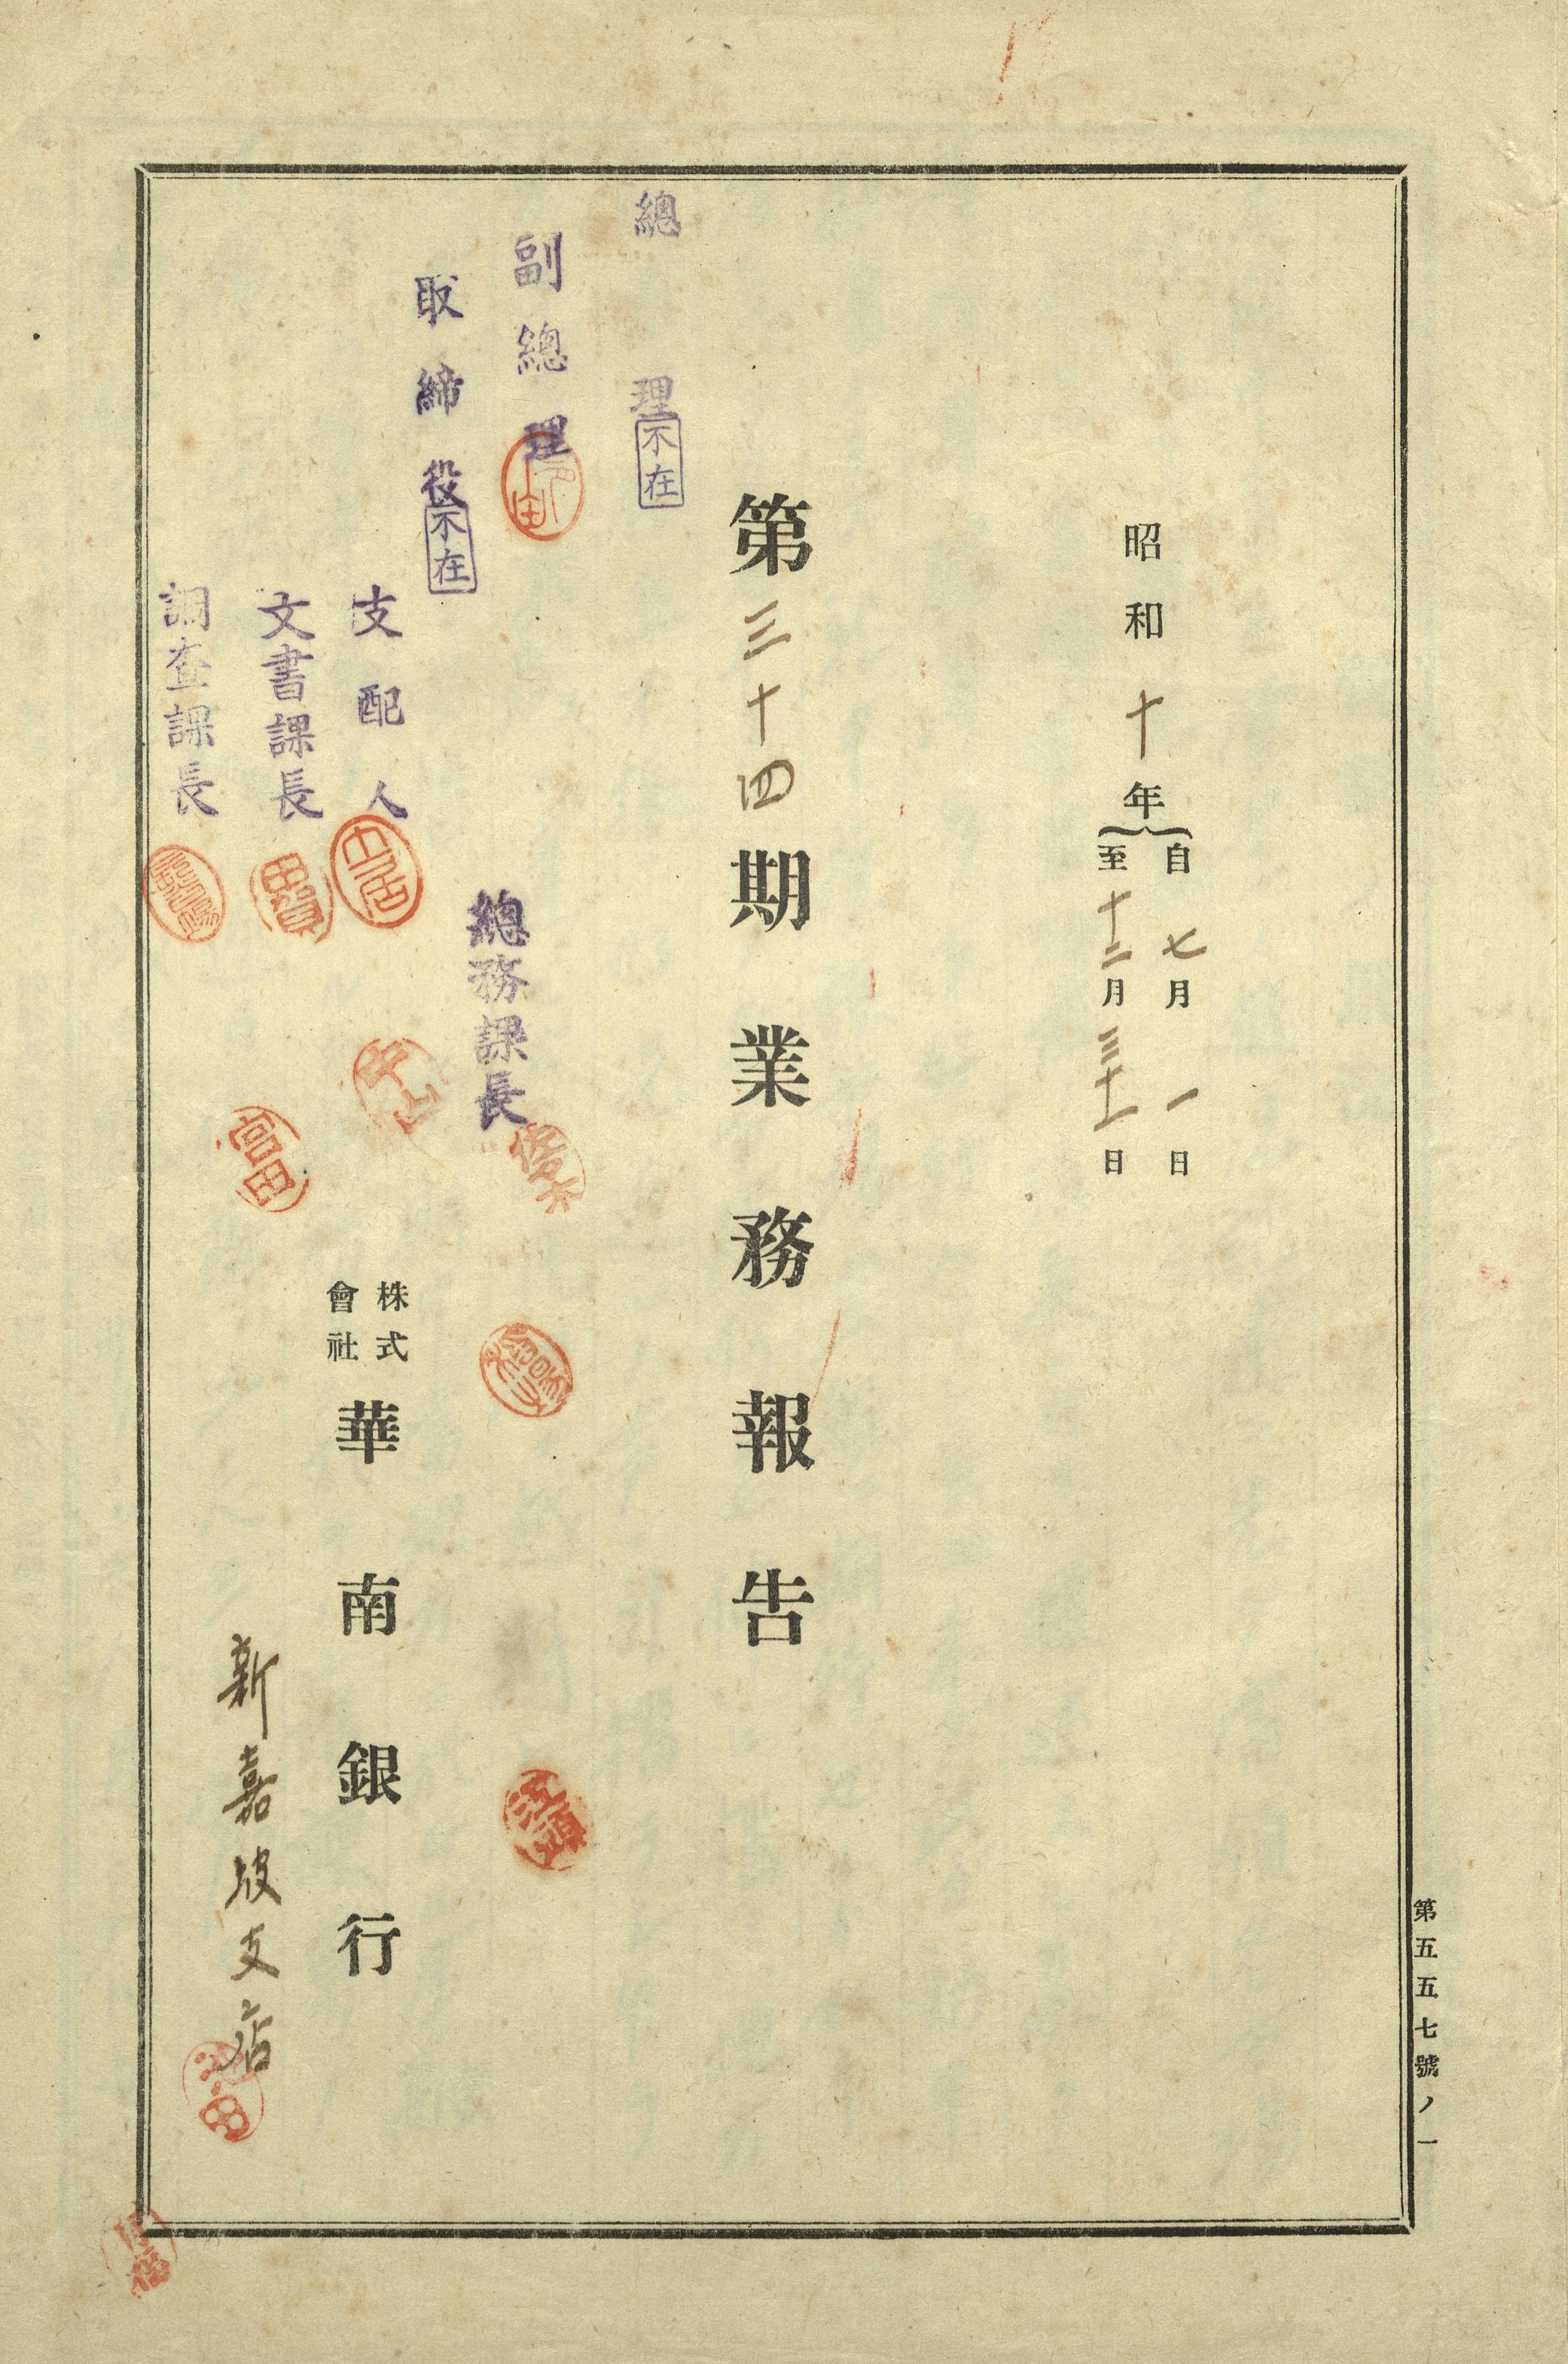 第五五七號ノ一
昭和十年
自七月一日
至十二月三十一日
第三十四期業務報告
總理
不在
副總理
取締役
不在
總務課長
支配人
文書課長
調査課長
中山
富田
江頭
株式會社
華南銀行
新嘉坡支店